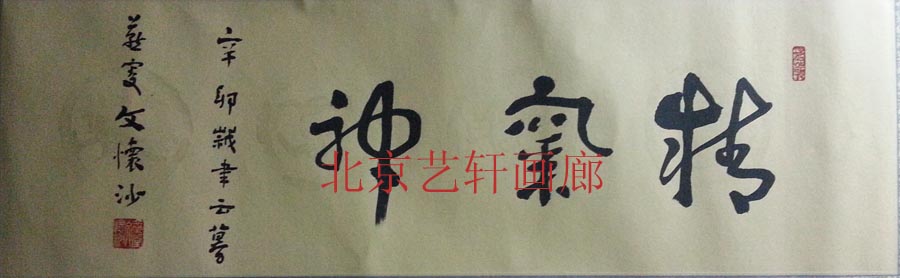 精氣神
辛卯歲聿云暮
燕叟文懷沙
北京艺轩画廊